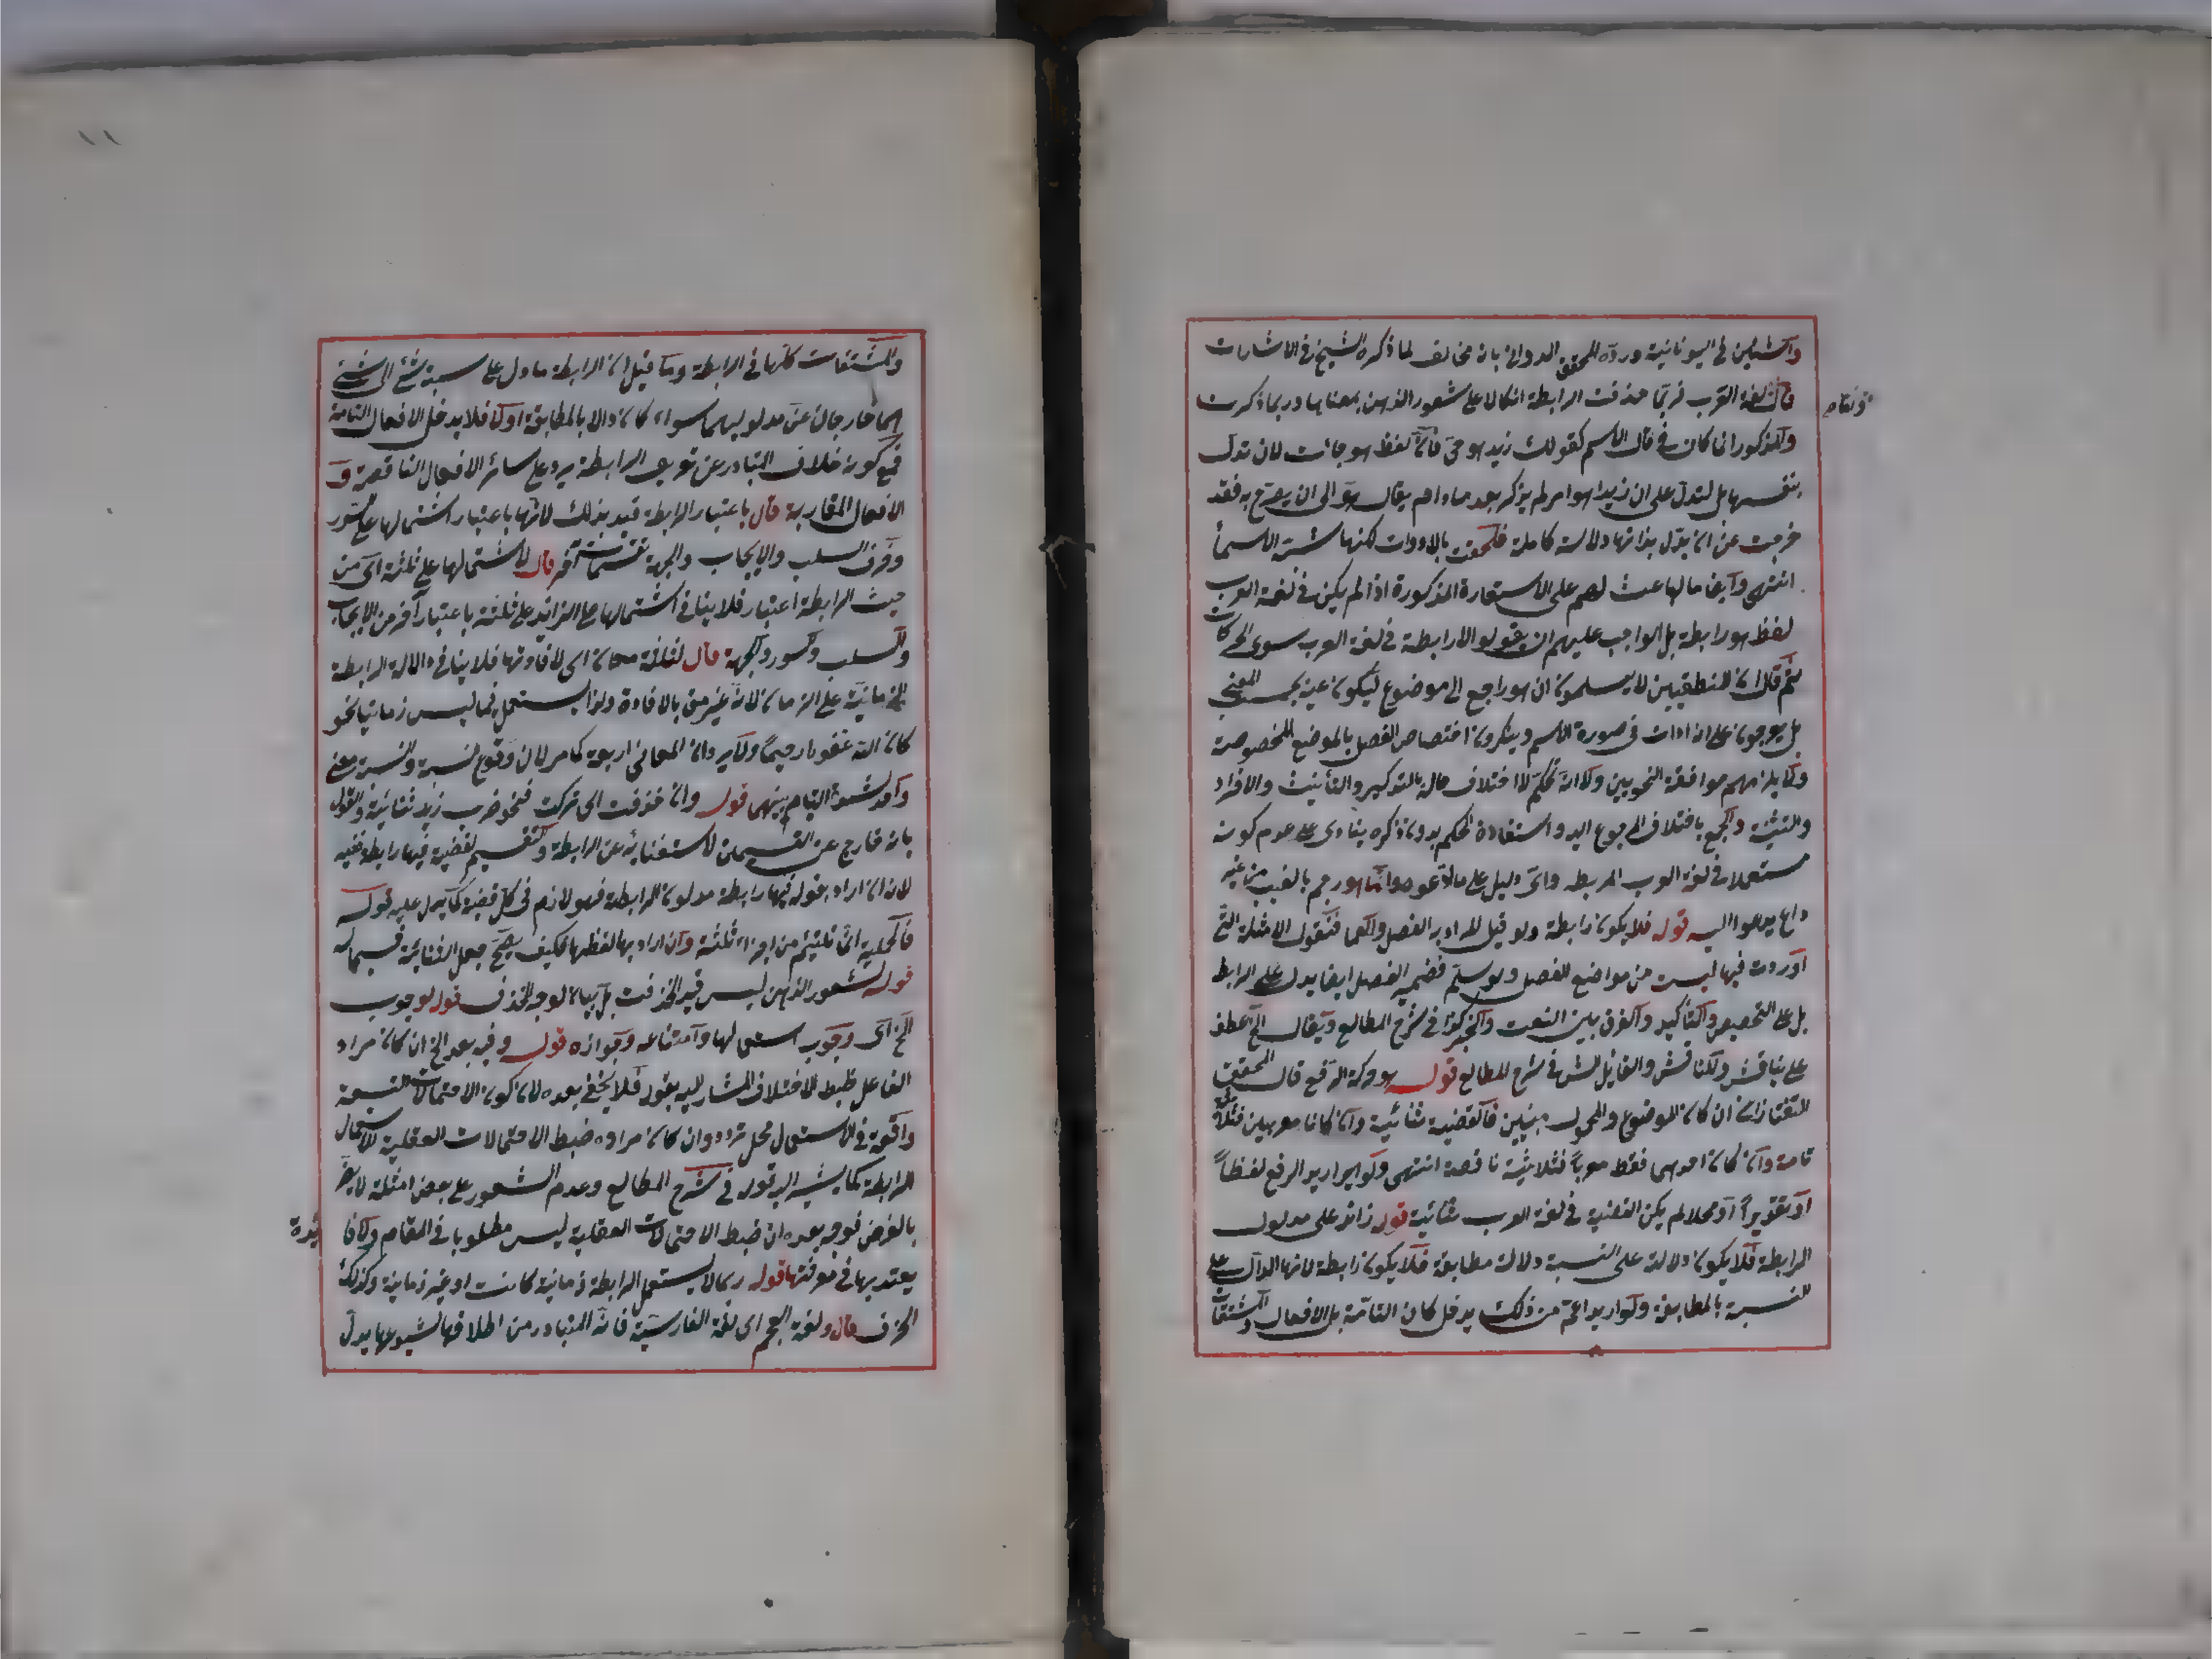 واستين في اليونانية وردّه المحقق الدواني بانه مخالف لما ذكره الشيخ في الاشارات
فان لغة العرب فربما حذفت الرابطة اتكالا على شعور الذهن بمعناها وربما ذكرت
والمذكور انما كان في قالب الاسم كقولك زيد هو حي فان لفظ هو جائت لا لان تدل
بنفسها بل لتدل على ان زيدا هو امر لم يذكر بعد ما دام يقال هو الى ان يصرح به فقد
خرجت عن ان تدل بذاتها دلالة كاملة فلحقت بالادوات لكنها تشبه الاسماء
انتهى وايضا ما الباعث لهم على الاستعارة المذكورة اذا لم يكن في لغة العرب
لفظ هو رابطة بل الواجب عليهم ان يقولوا لا رابطة في لغة العرب سوى الحركات
ثم قال ان المنطقيين لا يسلمون ان هو راجع الى موضوع ليكون عينه بحسب المعنى
بل يوجبون على انه ادات في صورة الاسم وينكرون اختصاص الفصل بالموضع المخصوصة
ولا يلزمهم موافقة النحويين ولا انه تحكم لا اختلاف حاله بالتذكير والتأنيث والافراد
والتثنية والجمع باختلاف المرجوع اليه واستفادة الحكم بدون ذكره ينادى على عدم كونه
مستعملا في لغة العرب للربط واى دليل على مالا عوه وانما هو رجم بالغيب من غير
داع يدعوا اليه قوله فلا يكون رابطة ولو قيل المراد به الفصل والعماد فنقول الامثلة التى
اوردت فيها ليست من مواضع الفصل ولو سلم فضمير الفصل ايضا يدل على الربط
بل على التخصيص والتأكيد والفرق بين النعت والخبر كذا في شرح المطالع ويقال الخ عطف
على يناقش والمناقش والقايل الش في شرح المطالع قوله هو حركة الرفع قال المحقق
التفتازانى ان كان الموضوع والمحمول مبنيين فالقضية ثنائية وان كانا معربين فثلاثية
تامة وان كان احدهما فقط معربا فثلاثية ناقصة انتهى ولو اريد الرفع لفظاً
او تقديراً او محلا لم يكن القضية في لغة العرب ثنائية قوله زائد على مدلول
الرابطة فلا يكون دلالته على النسبة دلالة مطابقة فلا يكون رابطة لانها الدال على
النسبة بالمطابقة ولو اريد اعم من ذلك يدخل كان التامة بل الافعال والمشتقات
والمشتقات كلها في الرابطة وما قيل ان الرابطة ما دل على نسبة شئ الى شئ
هما خارجان عن مدلوليهما سواء كان دالا بالمطابقة او لا فلا يدخل الافعال التامة
فمع كونه خلاف المتبادر عن تعريف الرابطة يرد على سائر الافعال الناقصة و
الافعال المقاربة قال باعتبار الرابطة قيد بذلك لانها باعتبار اشتمالها على السور
وحرف السلب والايجاب والجهة تقسيمات آخر قال لاشتمالها على ثلثة اى من
حيث الرابطة اعتبار فلا ينافي اشتمالها على الزائد على ثلثة باعتبار آخر من الايجاب
والسلب والسور والجهة قال لثلثة معان اى لافادتها فلا ينافي دلالة الرابطة
الزمانية على الزمان لانه غير معنى بالافادة ولذا يستعمل فيما ليس زمانيا نحو
كان الله غفورا رحيما ولا يرد ان المعانى اربعة كما مر لان وقوع النسبة والنسبة معنى
واحد لشدة التيام بينهما قوله وان حذفت اى تركت فنحو ضرب زيد ثنائية والقول
بانه خارج عن القسمين لاستغنائه عن الرابطة والتقسيم لقضية فيها رابطة ففيه
لانه ان اراد بقوله فيها رابطة مدلول الرابطة فهو لازم في كل قضية كما يدل عليه قوله
فالحملية انما تلتئم من اجزاء ثلثة وان اراد بها لفظها فكيف يصح جعل الثنائية قسيما له
قوله لشعور الذهن ليس قيد الحذفت بل بيان لوجه الحذف قوله لوجوب
الخ اى وجوب استعمالها وامتناعه وجوازه قوله وفيه بعد الخ ان كان مراد
القاعل ضبط الاختلاف المشار اليه بقوله فلا يخفى بعده لان كون الاحتمالات التسعة
واقعة في الاستعمال محل تردد وان كان مراده ضبط الاحتمالات العقلية لاستعمال
الرابطة كما يشير اليه قوله في شرح المطالع وعدم الشعور على بعض امثلة لا يضر
بالغرض فوجه بعده ان ضبط الاحتمالات العقلية ليس مطلوبا في المقام ولا فا
ئدة
يعتد بها في معرفتها قوله ربما لا يستعمل الرابطة زمانية كانت او غير زمانية وكذلك
الحرف قال ولغة العجم اى لغة الفارسية فانه المتبادر من اطلاقها لشيوعها يدل